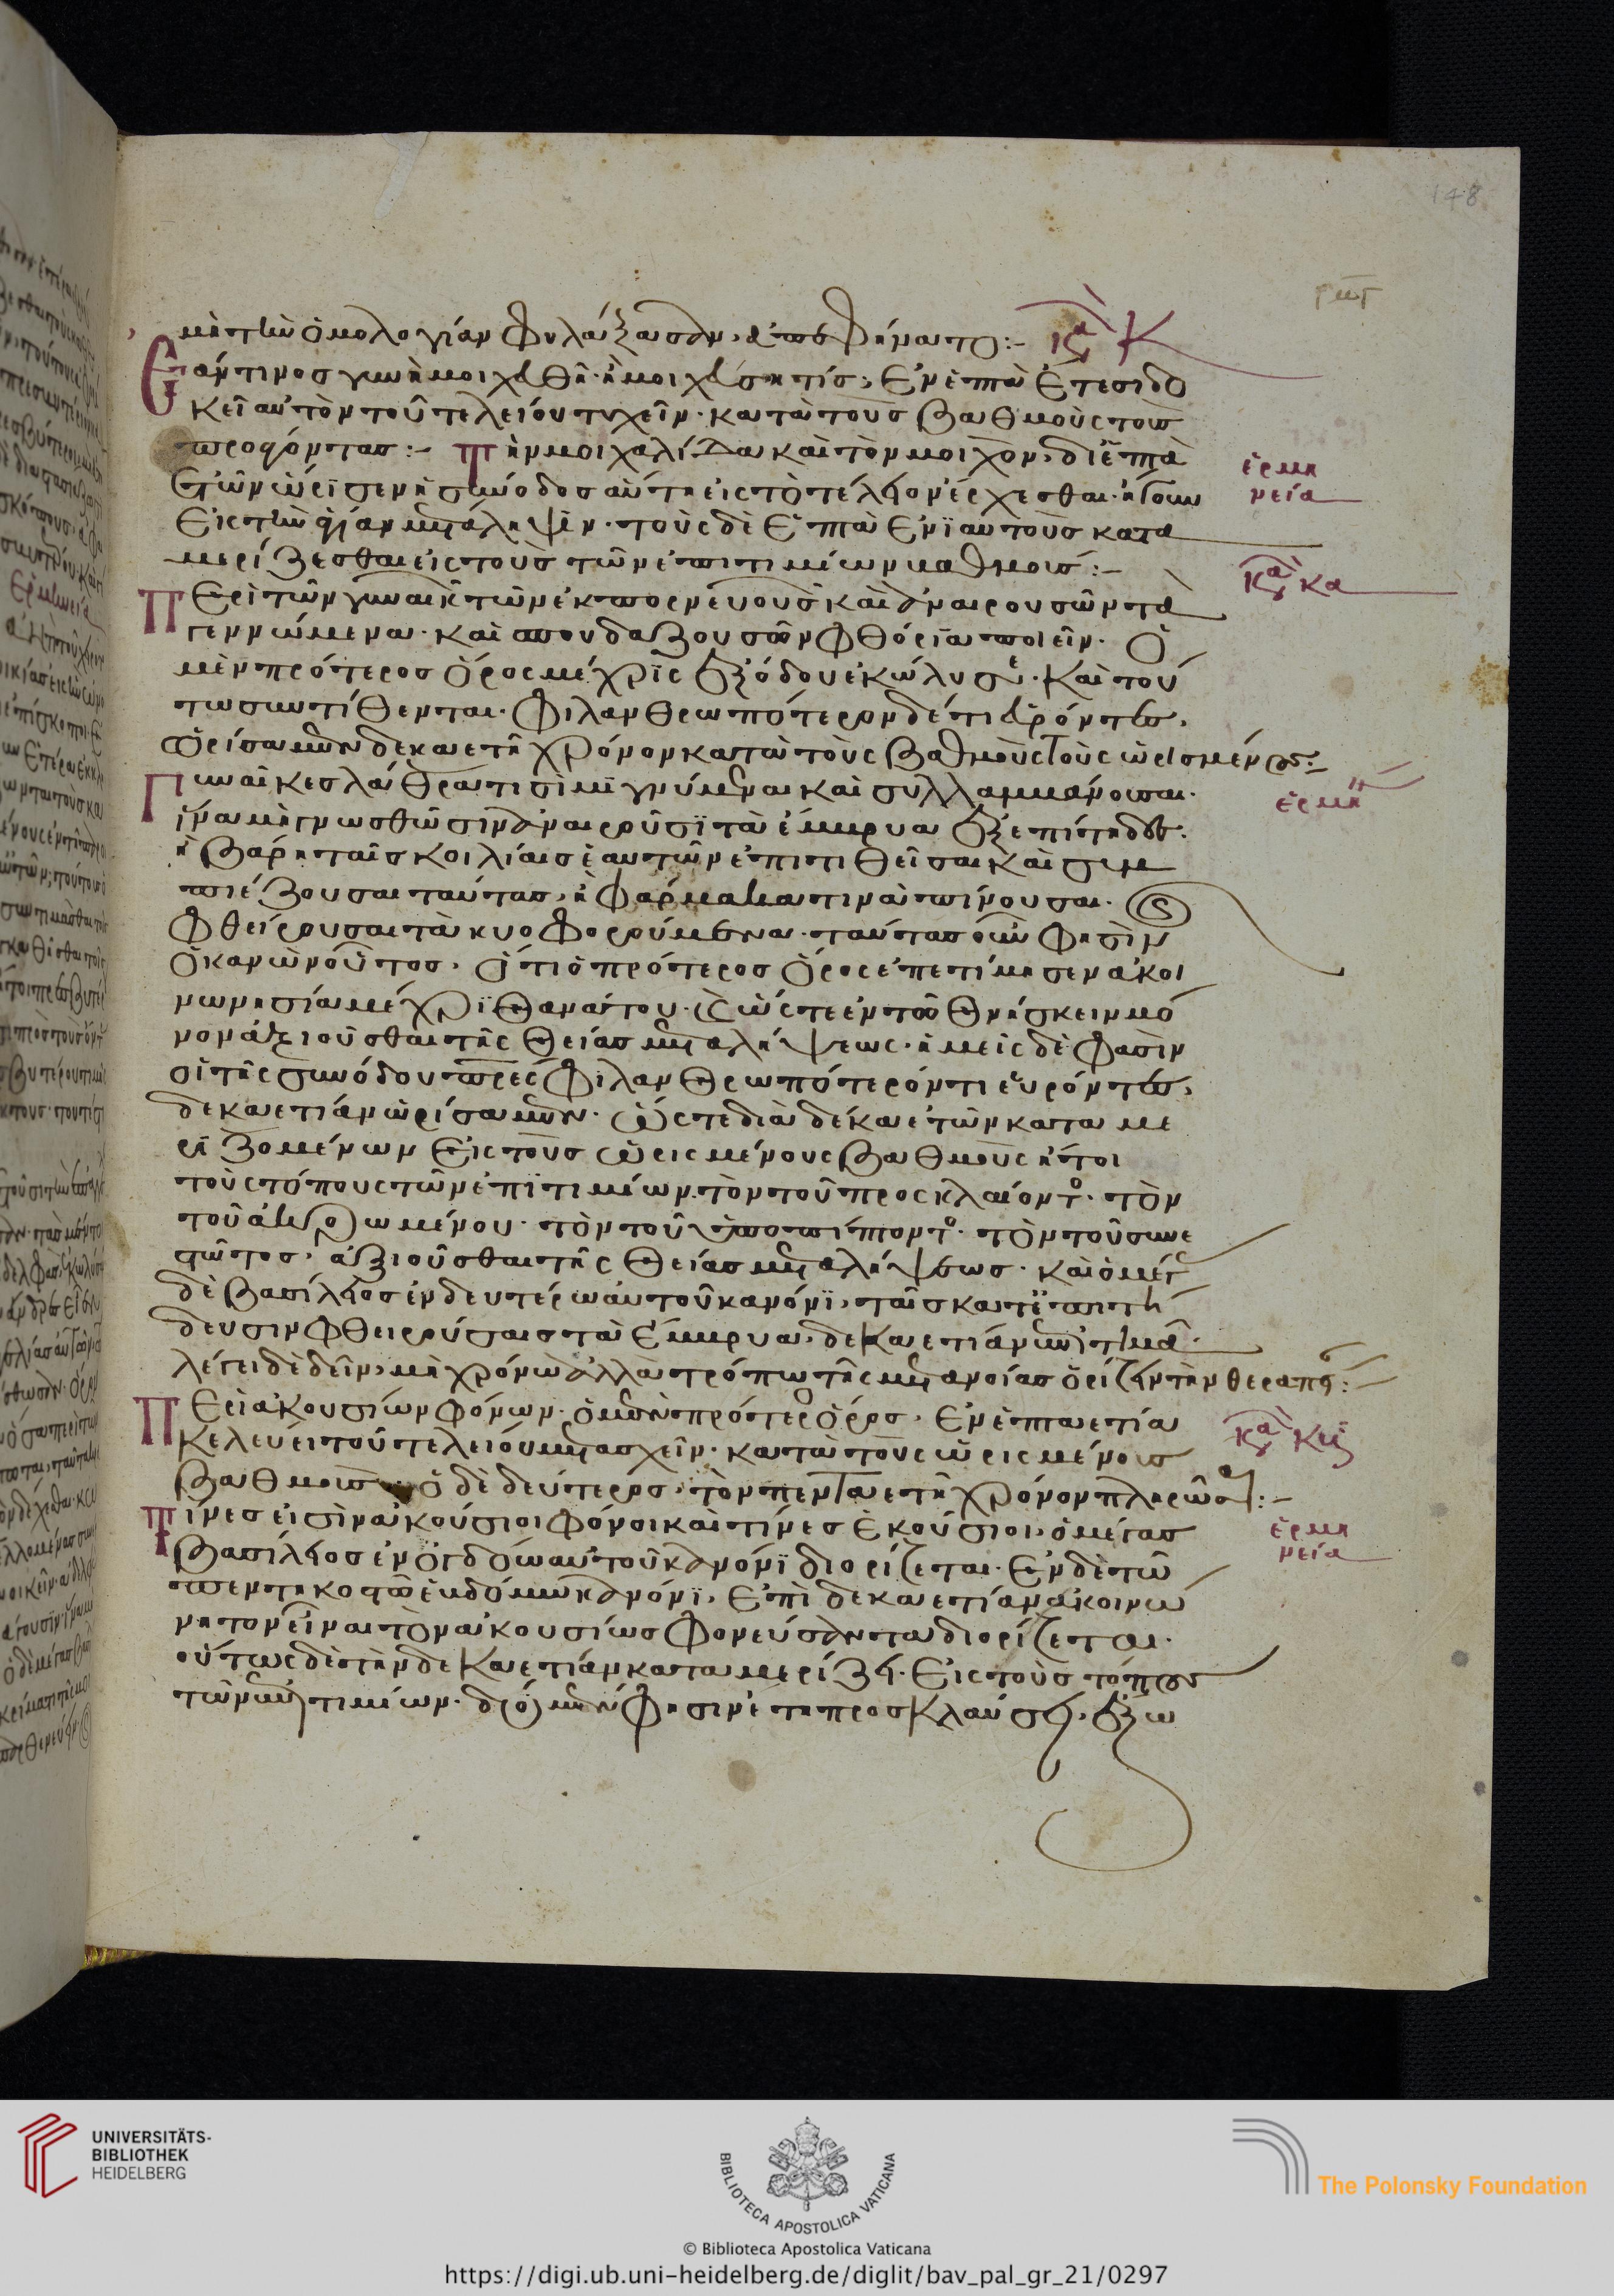 148
μὴ τὴν ὁμολογίαν φυλάξασαν, ἀπεφήναντο:- κα Κ
Εάν τινος γυνὴ μοιχευθῆ· ἢ μοιχεύσῃ τίς, ἐν ἑπτὰ ἔτεσι δο
κεῖ αὐτὸν τοῦ τελείου τυχεῖν· κατὰ τοὺς βαθμοὺς τοὺς
προάγοντας:- Τὴν μοιχαλίδα καὶ τὸν μοιχὸν, δι ἑπτὰ
ἐτῶν ὥρισεν ἡ σύνοδος αὕτη εἰς τὸ τέλειον ἔρχεσθαι· ἤγουν
εἰς τὴν ἁγίαν μετάληψιν· τοὺς δὲ ἑπτὰ ἐνιαυτοὺς κατα
μερίζεσθαι εἰς τοὺς τῶν ἐπιτιμίων βαθμούς:-
ἑρμη
νεία
κα κα
Περὶ τῶν γυναικῶν τῶν ἐκπορνευουσῶν καὶ ἀναιρουσῶν τὰ
γεννώμενα· καὶ σπουδαζουσῶν φθόρια ποιεῖν· Ὁ
μὲν πρότερος ὅρος μέχρις ἐξόδου ἐκώλυσεν· καὶ τού
τω συντίθενται· φιλανθρωπότερον δέ τι εὑρόντες,
ὡρίσαμεν δεκαετῆ χρόνον κατὰ τοὺς βαθμοὺς τοὺς ὡρισμένους:-
Γυναῖκες λάθρα τισὶ μιγνύμεναι καὶ συλλαμβάνουσαι·
ἑρμη
ἵνα μὴ γνωσθῶσιν ἀναιροῦσι τὰ ἔμβρυα ἐξεπίτηδες·
ἢ βάρη ταῖς κοιλίαις ἑαυτῶν ἐπιτιθεῖσαι καὶ συμ
πιέζουσαι ταύτας, ἢ φάρμακα τινὰ πίνουσαι·
φθείρουσαι τὰ κυοφορούμενα· ταύτας οὖν φησὶν
ὁ κανὼν οὗτος, ὅτι ὁ πρότερος ὅρος ἐπετίμησεν ἀκοι
νωνησίαν μέχρι θανάτου· ὥστε ἐν τῶ θνήσκειν μό
νον ἀξιοῦσθαι τῆς θείας μεταλήψεως· ἡμεῖς δὲ φασὶν
οἱ τῆς συνόδου πρες φιλανθρωπότερόν τι εὑρόντες,
δεκαετίαν ὡρίσαμεν· ὥστε διὰ δέκα ἐτῶν κατα με
ριζομένων εἰς τοὺς ὡρισμένους βαθμοὺς ἤτοι
τοὺς τόπους τῶν ἐπιτιμίων· τὸν τοῦ προσκλαίοντος· τὸν
τοῦ ἀκροωμένου· τὸν τοῦ ὑποπίπτοντος· τὸν τοῦ συνε
στῶτος, ἀξιοῦσθαι τῆς θείας μεταλήψεως· καὶ ὁ μέγας
δὲ βασίλειος ἐν δευτέρω αὐτοῦ κανόνι, ταῖς κατ ἐπιτή
δευσιν φθειρούσαις τὰ ἔμβρυα, δεκαετίαν ἐπιτιμᾶ·
λέγει δὲ δεῖν, μὴ χρόνω ἀλλὰ τρόπω τῆς μετανοίας ὁρίζειν τὴν θεραπείαν:-
Περὶ ἀκουσίων φόνων· ὁ μὲν πρότερος ὅρος, ἐν ἑπταετία
κα κβ
κελεύει τοῦ τελείου μετασχεῖν· κατὰ τοὺς ὡρισμένους
βαθμοὺς· ὁ δὲ δεύτερος, τὸν πενταετῆ χρόνον πληρῶσαι:-
Τίνες εἰσὶν ἀκούσιοι φόνοι καὶ τίνες ἑκούσιοι, ὁ μέγας
ἑρμη
νεία
βασίλειος ἐν ὀγδόω αὐτοῦ κανόνι διορίζεται· ἐν δὲ τῶ
πεντηκοστῶ ἑβδόμω κανόνι, ἐπὶ δεκαετίαν ἀκοινώ
νητον εἶναι τὸν ἀκουσίως φονεύσαντα διορίζεται·
οὕτως δὲ τὴν δεκαετίαν καταμερίζει· εἰς τοὺς τόπους
τῶν ἐπιτιμίων· δύο μὲν φησὶν ἔτη προσκλαύσει, ἔξω
UNIVERSITÄTS-
BIBLIOTHEK
HEIDELBERG
BIBLIOTECA APOSTOLICA VATICANA
The Polonsky Foundation
© Biblioteca Apostolica Vaticana
https://digi.ub.uni-heidelberg.de/diglit/bav_pal_gr_21/0297